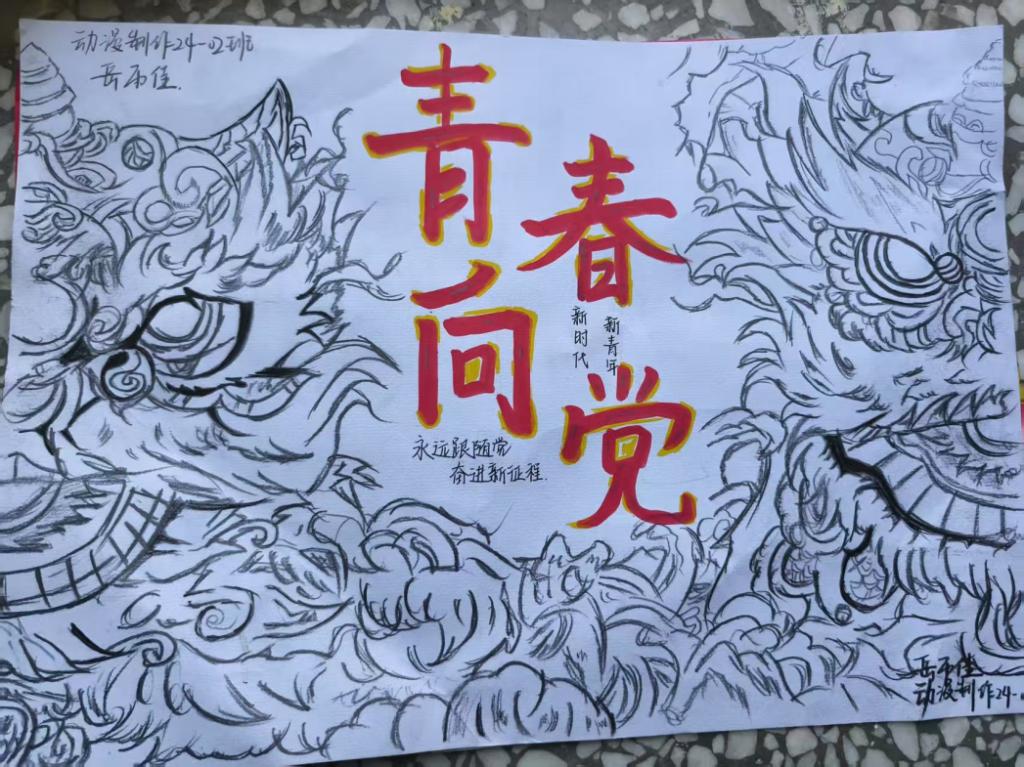 动漫制作24-02班
岳雨佳.
青春
向党
新时代
新青年
永远跟随党
奋进新征程.
岳雨佳
动漫制作24-0